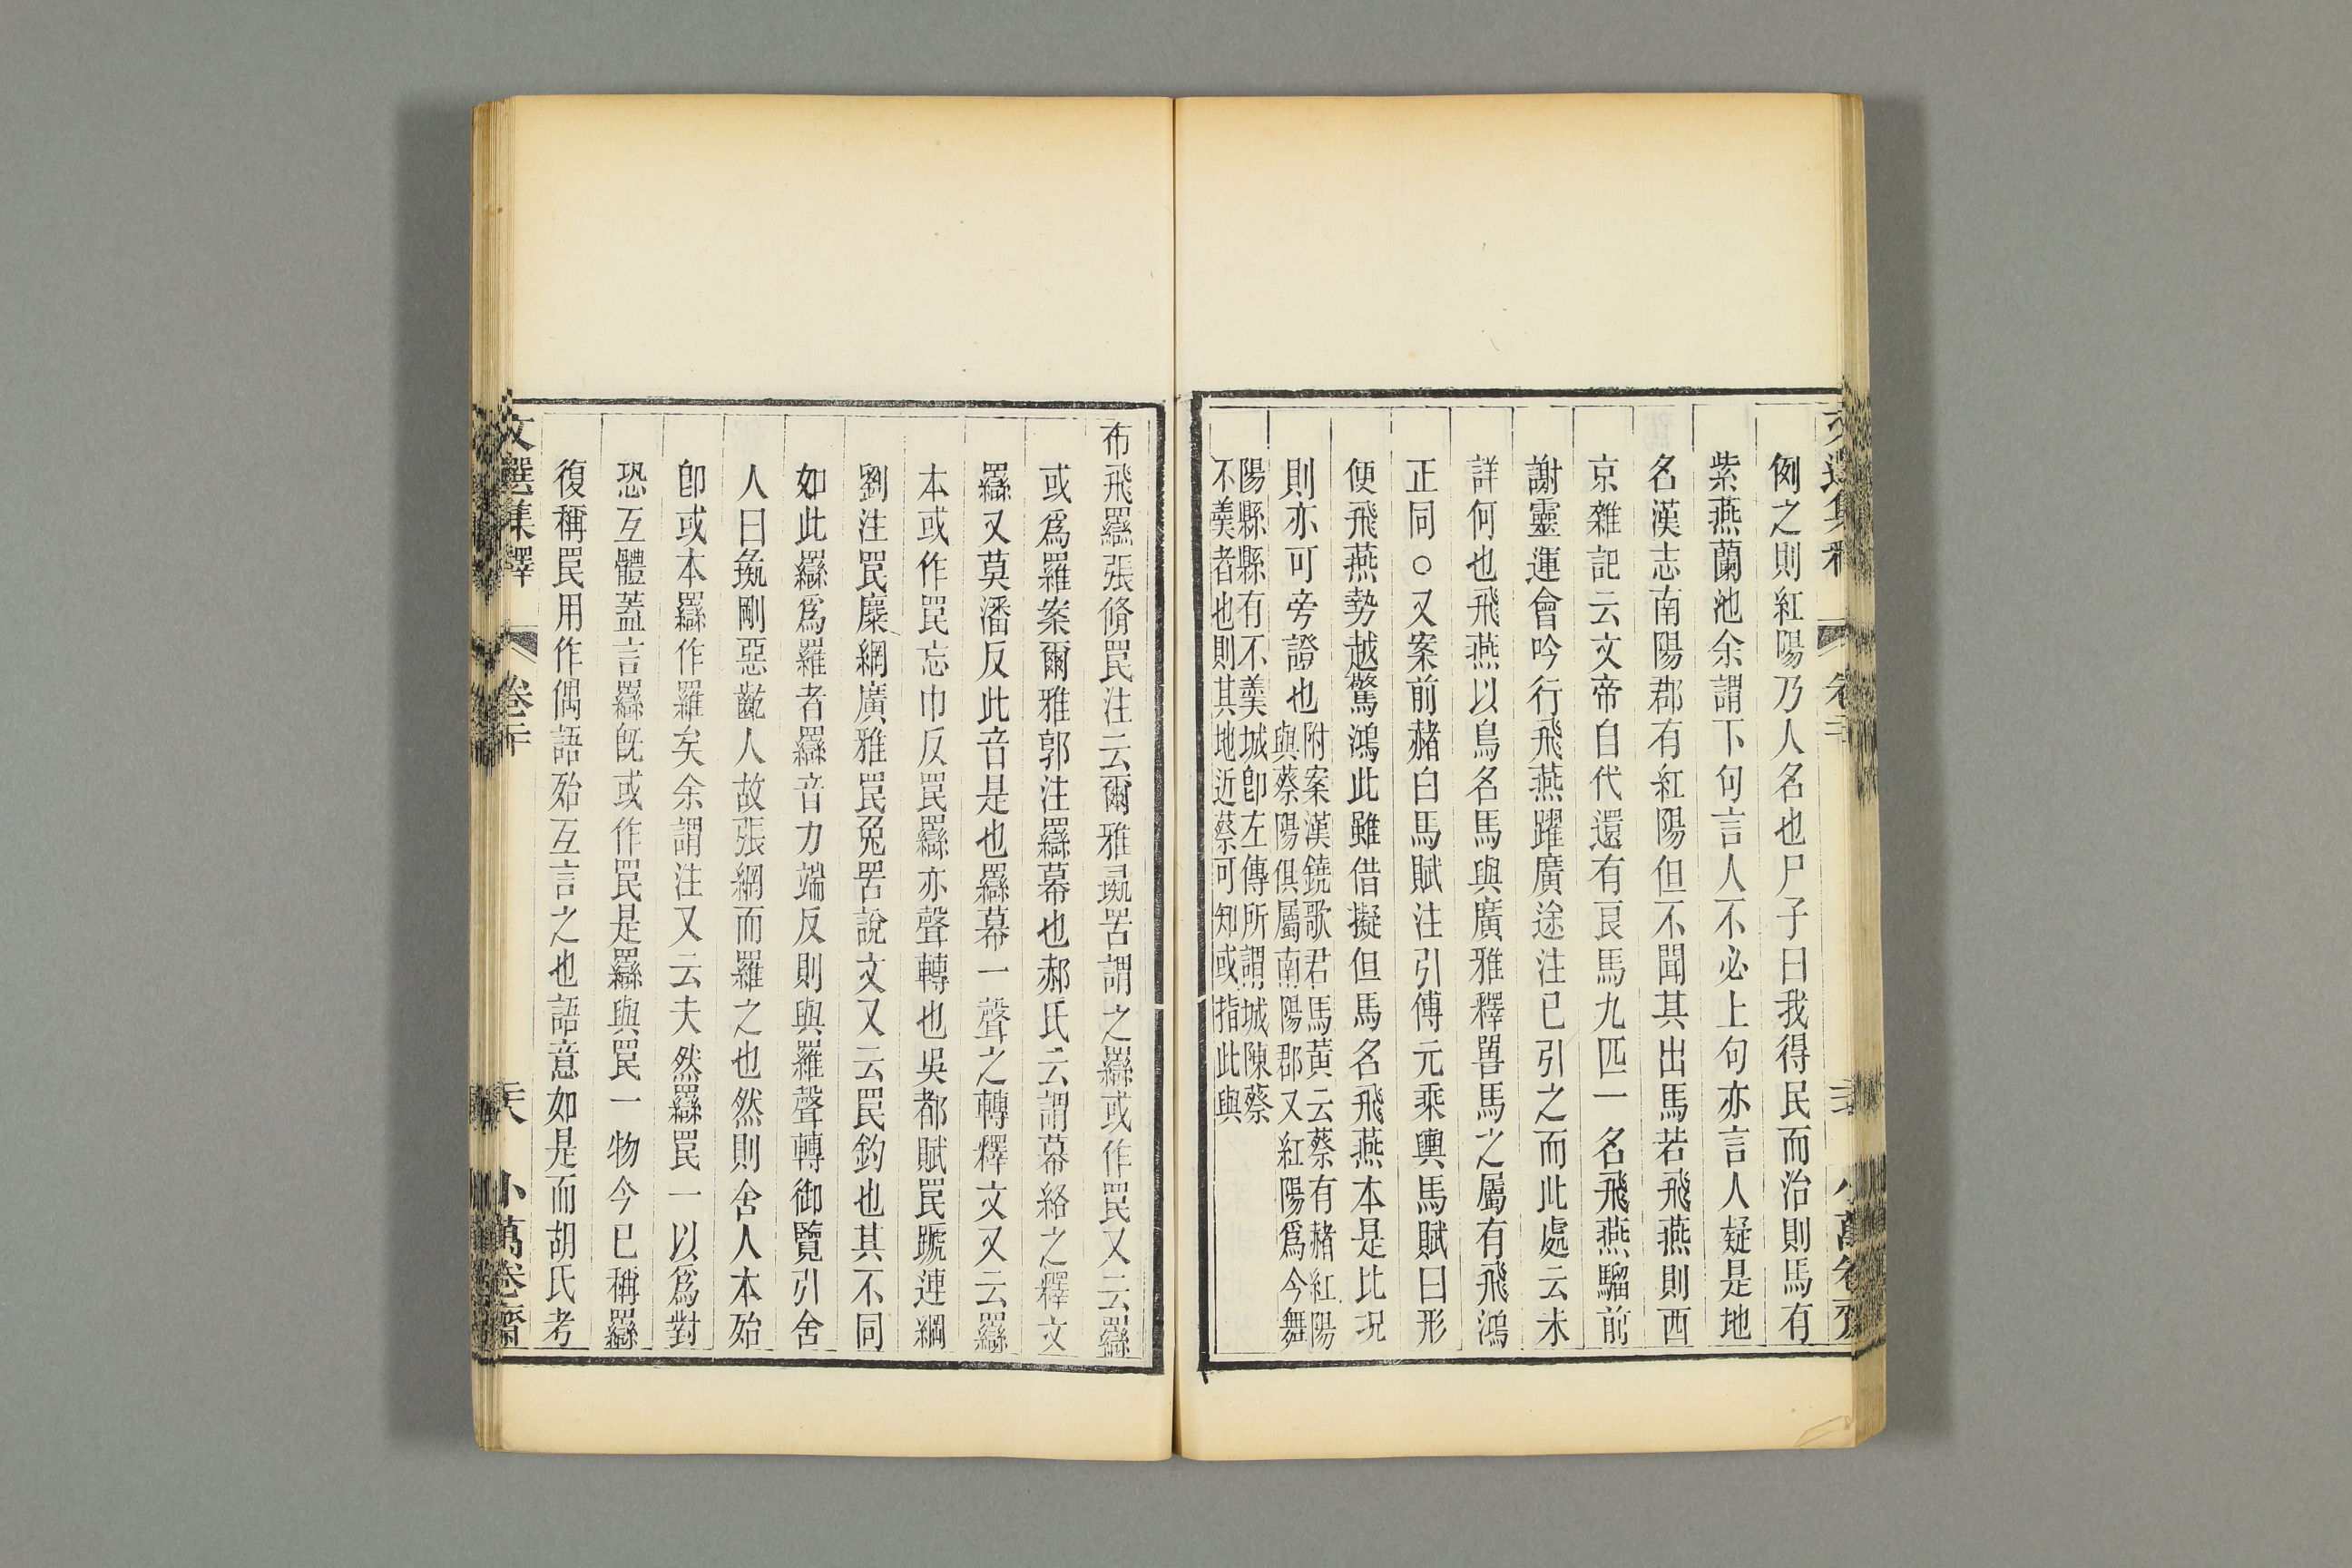 例之則紅陽乃人名也尸子曰我得民而治則馬有
紫燕蘭池余謂下句言人不必上句亦言人疑是地
名漢志南陽郡有紅陽但不聞其出馬若飛燕則西
京雜記云文帝自代還有良馬九匹一名飛燕騮前
謝靈運會吟行飛燕躍廣途注已引之而此處云未
詳何也飛燕以鳥名馬與廣雅釋嘼馬之屬有飛鴻
正同○又案前赭白馬賦注引傅元乘輿馬賦曰形
便飛燕勢越驚鴻此雖借擬但馬名飛燕本是比況
則亦可旁證也附案漢鐃歌君馬黃云蔡有赭紅陽
與蔡陽俱屬南陽郡又紅陽爲今舞
陽縣縣有不羹城卽左傳所謂城陳蔡
不羹者也則其地近蔡可知或指此與
布飛羉張脩罠注云爾雅彘罟謂之羉或作罠又云羉
或爲羅案爾雅郭注羉幕也郝氏云謂幕絡之釋文
羉又莫潘反此音是也羉幕一聲之轉釋文又云羉
本或作罠忘巾反罠羉亦聲轉也吳都賦罠蹏連綱
劉注罠麋網廣雅罠兔罟說文又云罠釣也其不同
如此羉爲羅者羉音力端反則與羅聲轉御覽引舍
人曰彘剛惡齔人故張網而羅之也然則舍人本殆
卽或本羉作羅矣余謂注又云夫然羉罠一以爲對
恐互體蓋言羉旣或作罠是羉與罠一物今已稱羉
復稱罠用作偶語殆互言之也語意如是而胡氏考
文選集釋 卷二十 天 小萬卷齋